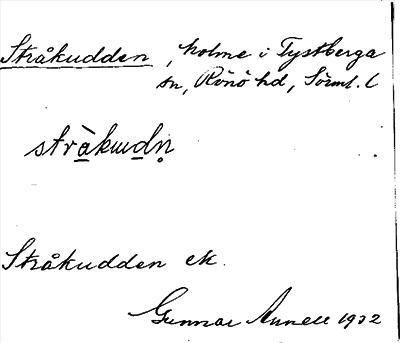 Stråkudden, holme i Tystberga
sn, Rönö hd, Sörml. l
stràkɯdn̥
Stråkudden ek.
Gunnar Annell 1932